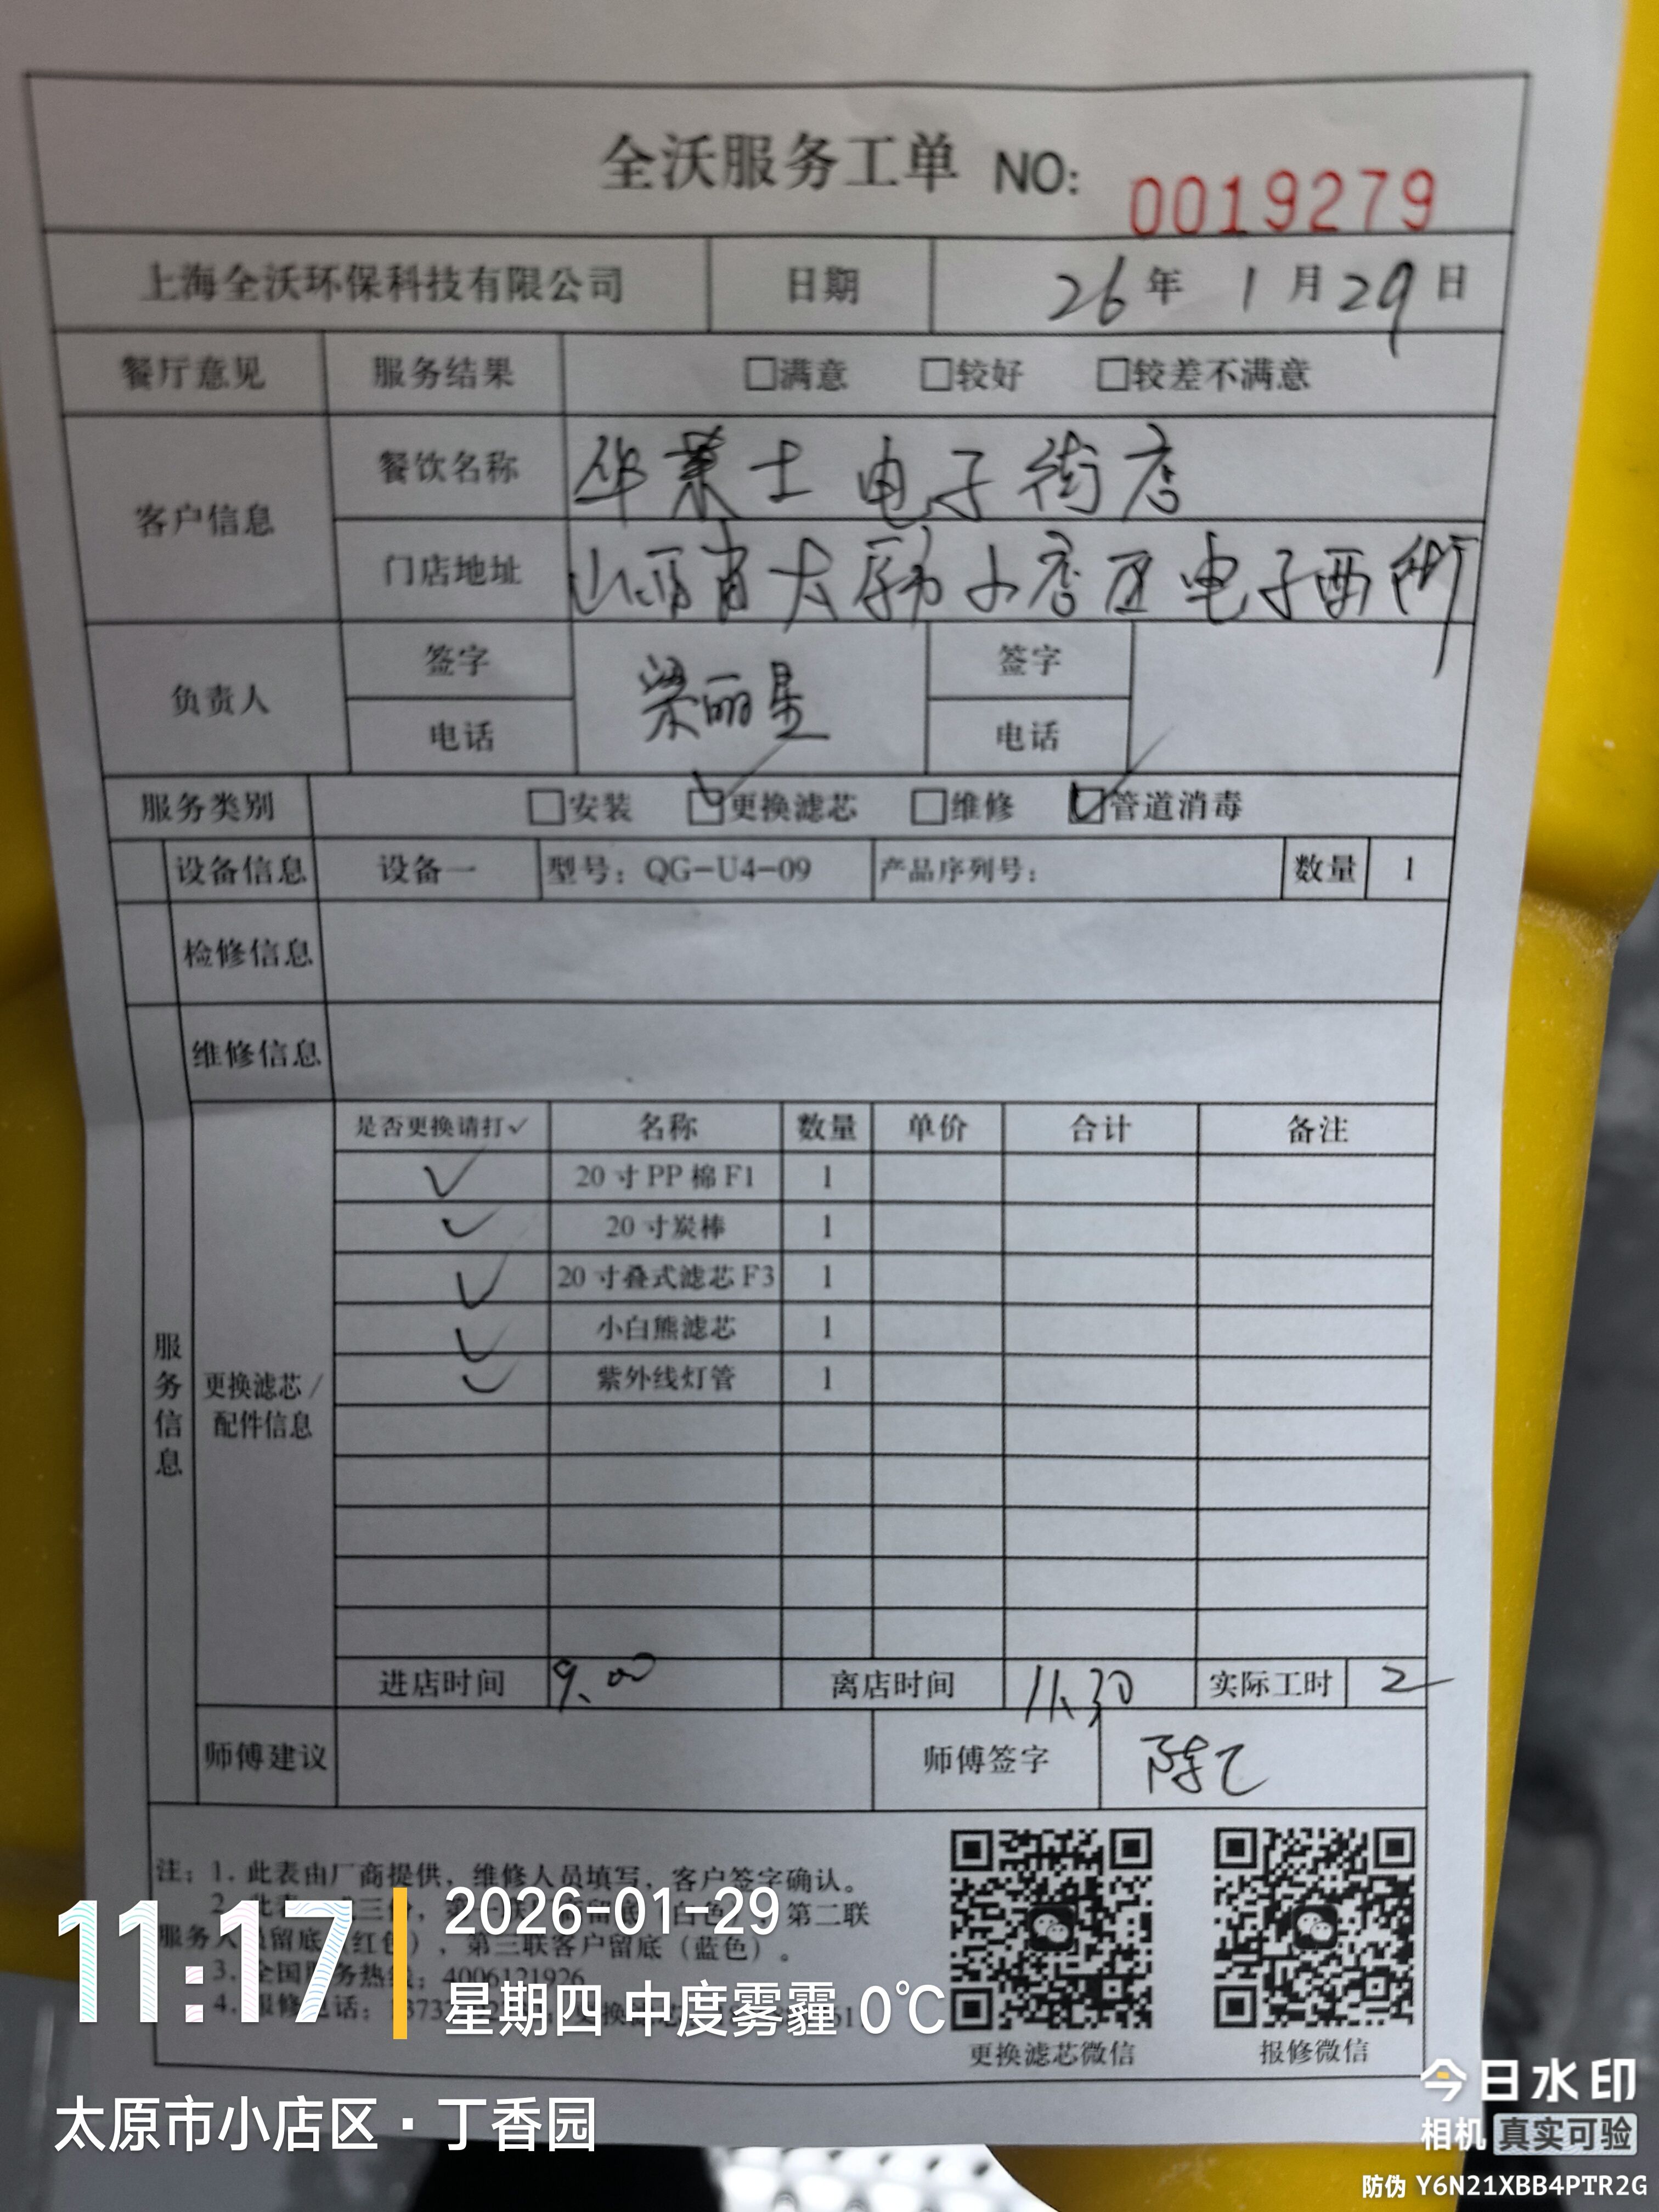 全沃服务工单 NO: 0019279
上海全沃环保科技有限公司 日期 26年 1月29日
餐厅意见 服务结果 □满意 □较好 □较差不满意
客户信息 餐饮名称 华莱士电子街店
门店地址 山西省太原市小店区电子西街
负责人 签字 梁丽星 签字
电话 电话
服务类别 □安装 ☑更换滤芯 □维修 ☑管道消毒
设备信息 设备一 型号：QG-U4-09 产品序列号： 数量 1
检修信息
维修信息
服务信息
更换滤芯/
配件信息
是否更换请打✓ 名称 数量 单价 合计 备注
✓ 20寸PP棉F1 1
✓ 20寸炭棒 1
✓ 20寸叠式滤芯F3 1
✓ 小白熊滤芯 1
✓ 紫外线灯管 1
进店时间 9.00 离店时间 11.30 实际工时 2
师傅建议 师傅签字 陈
注：1. 此表由厂商提供，维修人员填写，客户签字确认。
2. 此表 三份， 第二联
服务人员留底（红色），第三联客户留底（蓝色）。
3. 全国服务热线：4006121926
4. 报修电话：
更换滤芯微信 报修微信
11:17 2026-01-29
星期四 中度雾霾 0℃
太原市小店区·丁香园
今日水印
相机 真实可验
防伪 Y6N21XBB4PTR2G